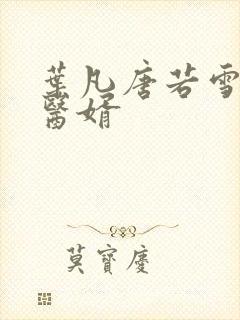 葉凡唐若雪
醫婿
莫寶慶